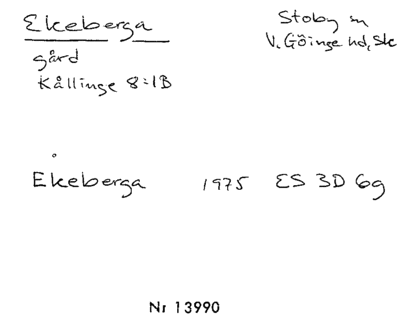 Ekeberga
Stoby sn
V. Göinge hd, Sk
gård
Kållinge 8:1B
Ekeberga 1975 ES 3D 6g
Nr 13990